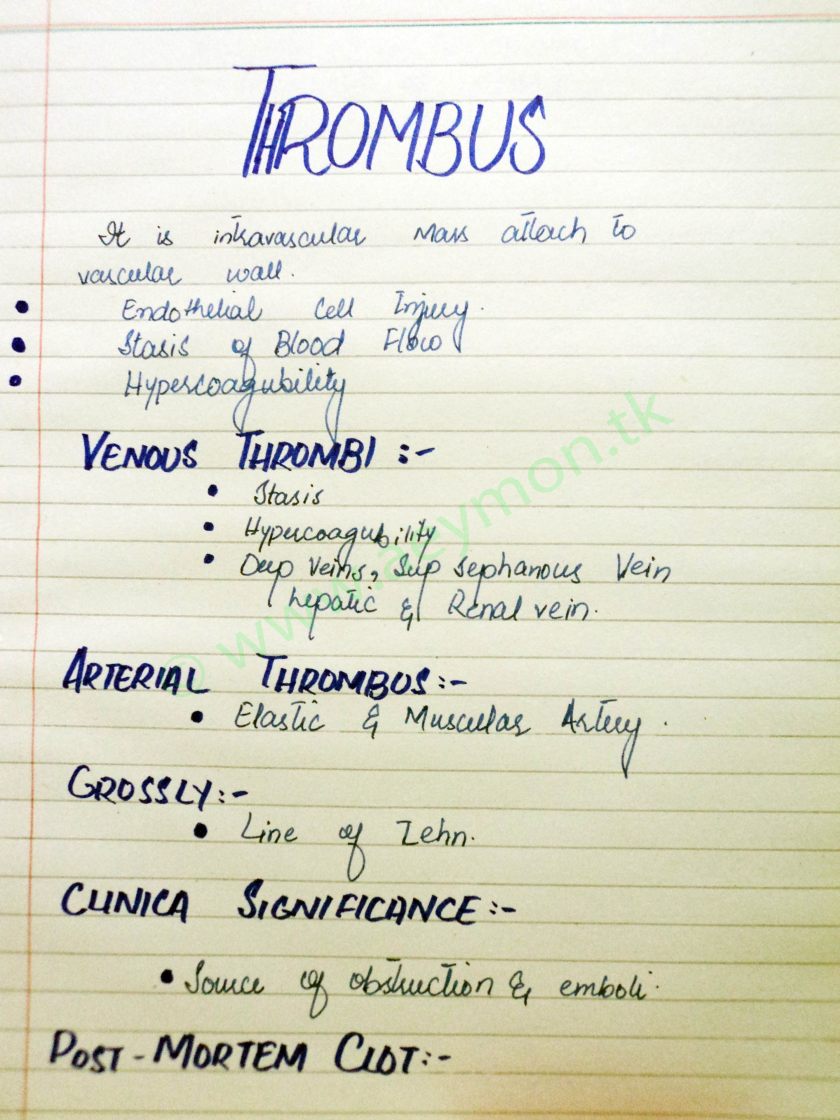 THROMBUS
It is intravascular mass attach to
vascular wall.
• Endothelial Cell Injury.
• Stasis of Blood Flow
• Hypercoagubility
VENOUS THROMBI :-
• Stasis
• Hypercoagubility
• Deep Veins, Sup sephanous Vein
hepatic & Renal vein.
ARTERIAL THROMBUS:-
• Elastic & Muscular Artery.
GROSSLY:-
• Line of Zehn.
CLINICA SIGNIFICANCE:-
• Source of obstruction & emboli.
POST-MORTEM CLOT:-